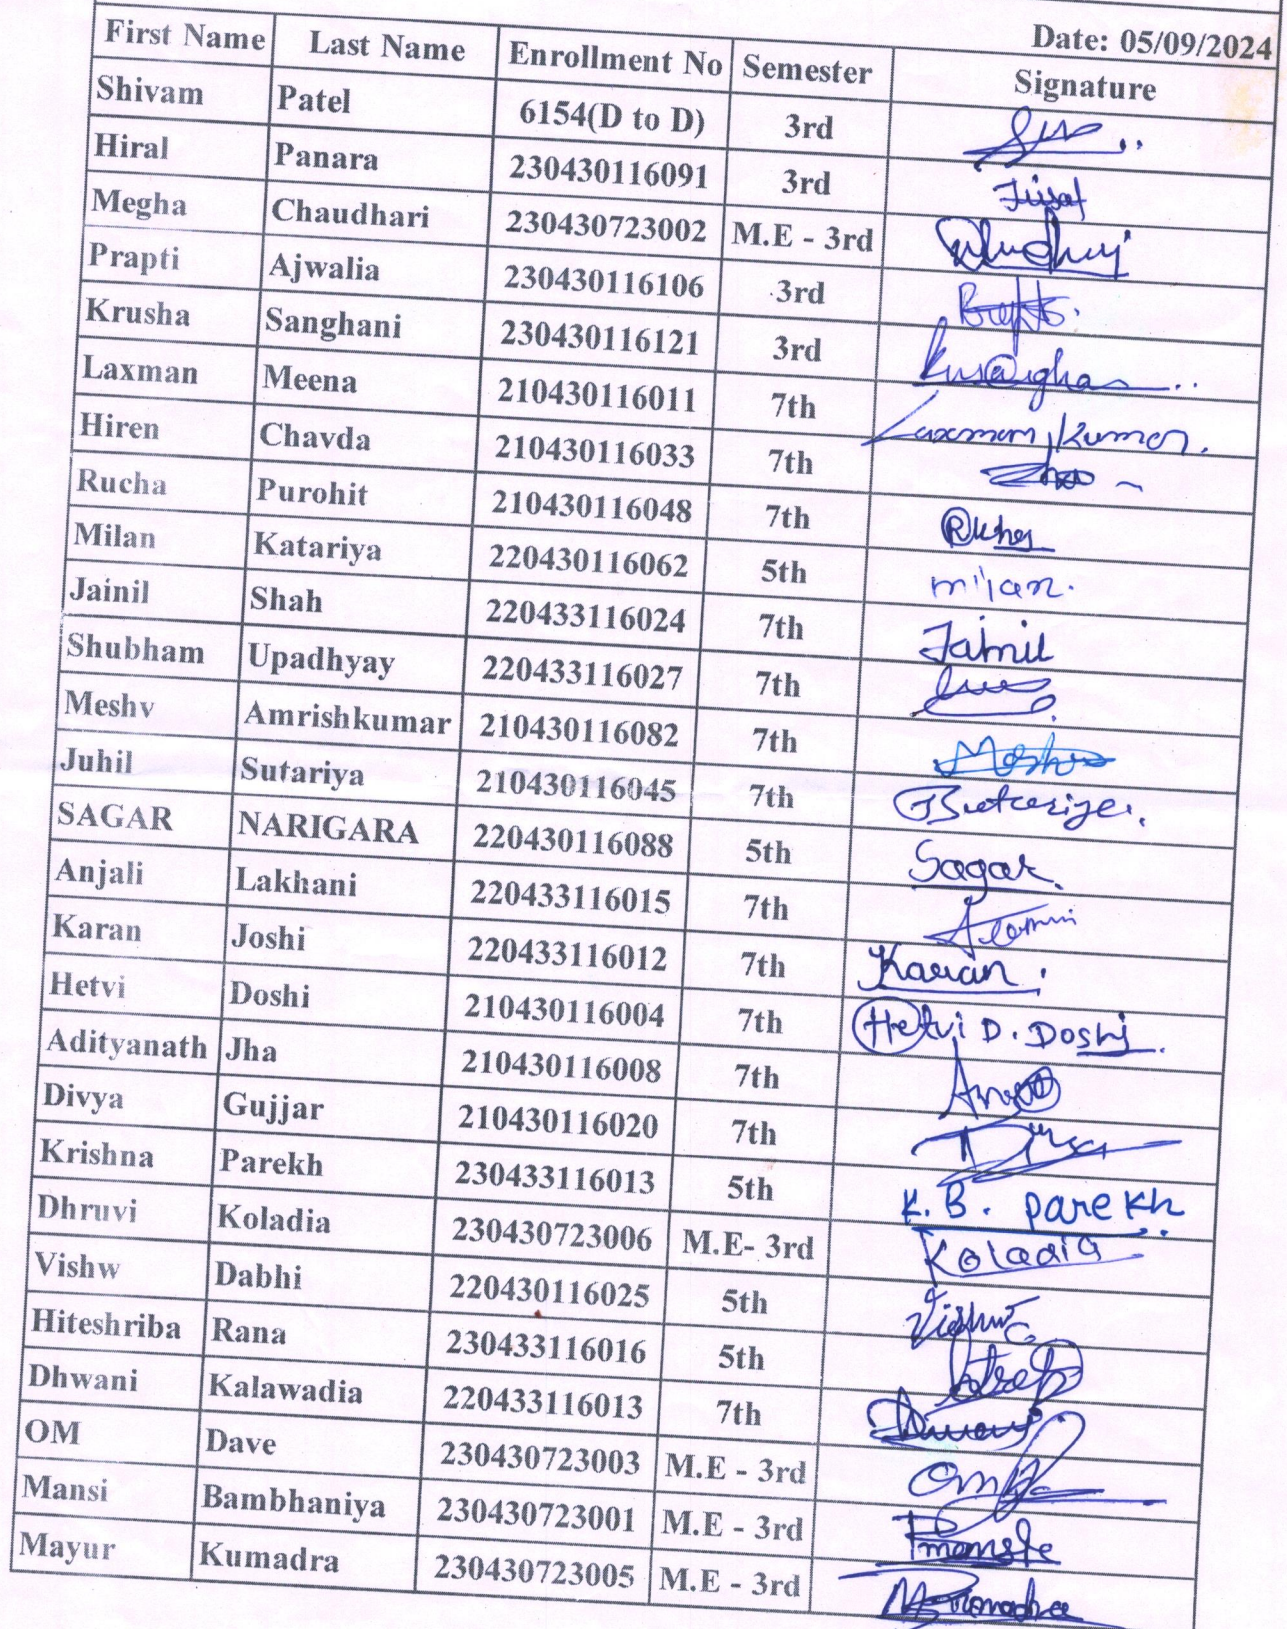 Date: 05/09/2024
First Name Last Name Enrollment No Semester Signature
Shivam Patel 6154(D to D) 3rd
Hiral Panara 230430116091 3rd
Megha Chaudhari 230430723002 M.E - 3rd
Prapti Ajwalia 230430116106 3rd
Krusha Sanghani 230430116121 3rd
Laxman Meena 210430116011 7th Laxman Kumar.
Hiren Chavda 210430116033 7th
Rucha Purohit 210430116048 7th
Milan Katariya 220430116062 5th milan.
Jainil Shah 220433116024 7th Jainil
Shubham Upadhyay 220433116027 7th
Meshv Amrishkumar 210430116082 7th
Juhil Sutariya 210430116045 7th
SAGAR NARIGARA 220430116088 5th Sagar.
Anjali Lakhani 220433116015 7th
Karan Joshi 220433116012 7th Karan.
Hetvi Doshi 210430116004 7th Hetvi D. Doshi
Adityanath Jha 210430116008 7th
Divya Gujjar 210430116020 7th
Krishna Parekh 230433116013 5th K. B. Parekh
Dhruvi Koladia 230430723006 M.E- 3rd Koladia
Vishw Dabhi 220430116025 5th Vishw
Hiteshriba Rana 230433116016 5th
Dhwani Kalawadia 220433116013 7th
OM Dave 230430723003 M.E - 3rd
Mansi Bambhaniya 230430723001 M.E - 3rd
Mayur Kumadra 230430723005 M.E - 3rd